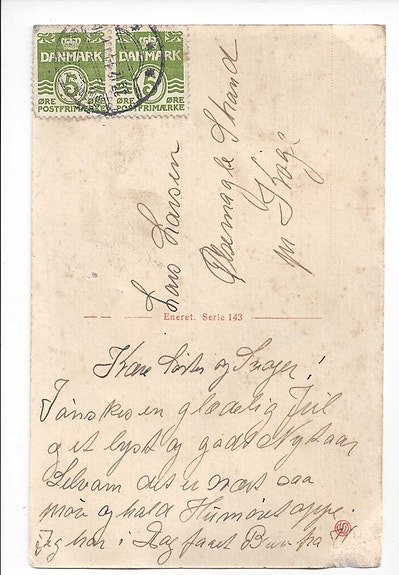 DANMARK DANMARK
5 5
ØRE ØRE
POSTFRIMÆRKE POSTFRIMÆRKE
Lars Larsen
Ølsemagle Strand
pr
Eneret. Serie 143
Kære og Svoger!
I ønskes en glædelig Jul
og et lyst og godt Nytaar
Selvom det er svært saa
maa I holde Humøret oppe.
Jeg har i Dag faaet fra